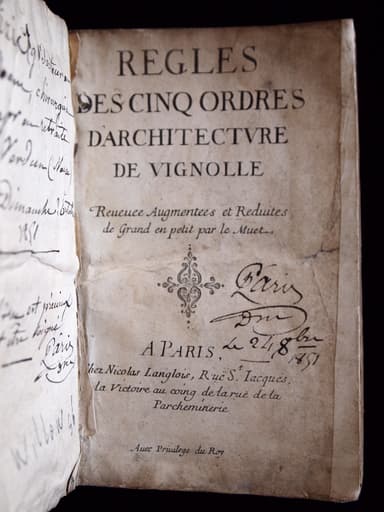 chirurgien
en retraite
Verdun (Meuse
Dimanche
1851
est précieux
Paris
Willow
REGLES
DES CINQ ORDRES
D'ARCHITECTVRE
DE VIGNOLLE
Reueuee Augmentees et Reduites
de Grand en petit par le Muet.
Paris
Dm
Le 24 8bre
1851
A PARIS,
Chez Nicolas Langlois, Rue St. Iacques,
la Victoire au coing de la rue de la
Parcheminerie
Auec Priuilege du Roy